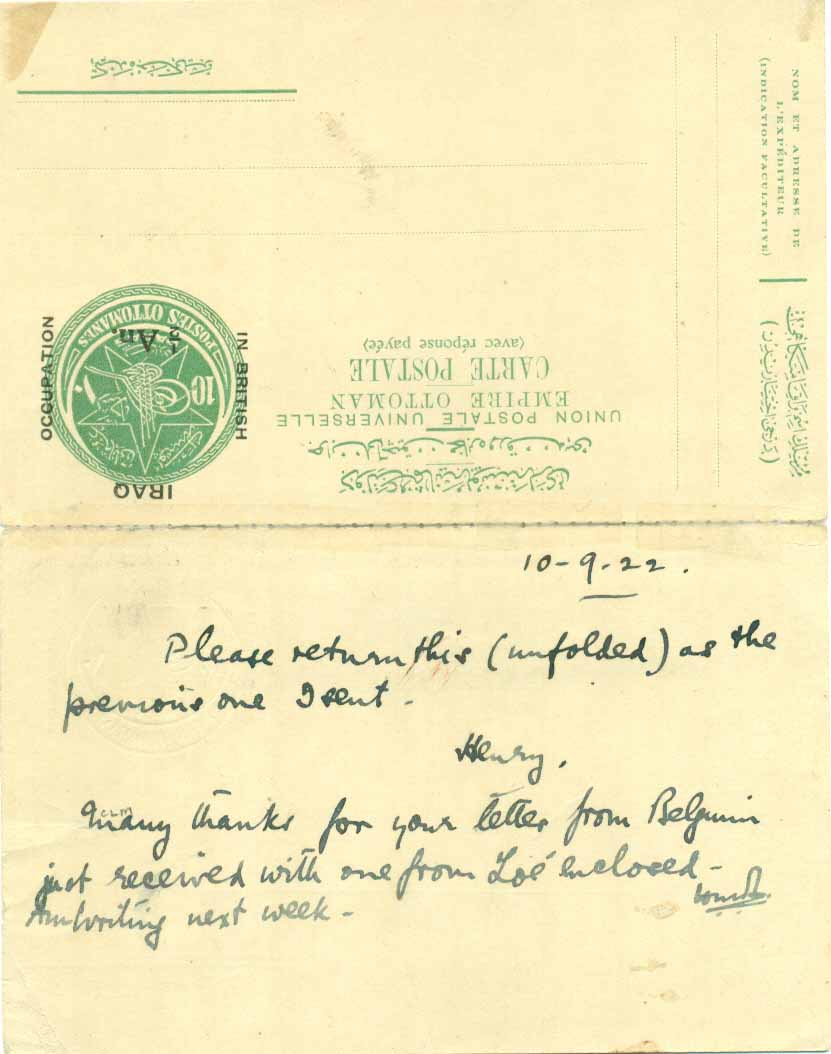 NOM ET ADRESSE DE
L'EXPÉDITEUR
(INDICATION FACULTATIVE)
UNION POSTALE UNIVERSELLE
EMPIRE OTTOMAN
CARTE POSTALE
(avec réponse payée)
IRAQ
IN BRITISH
OCCUPATION
POSTES OTTOMANES
10
½ An.
10-9-22.
Please return this (unfolded) as the
previous one I sent.
Henry.
Many thanks for your letter from Belgium
just received with one from Zoé enclosed-
Am writing next week-